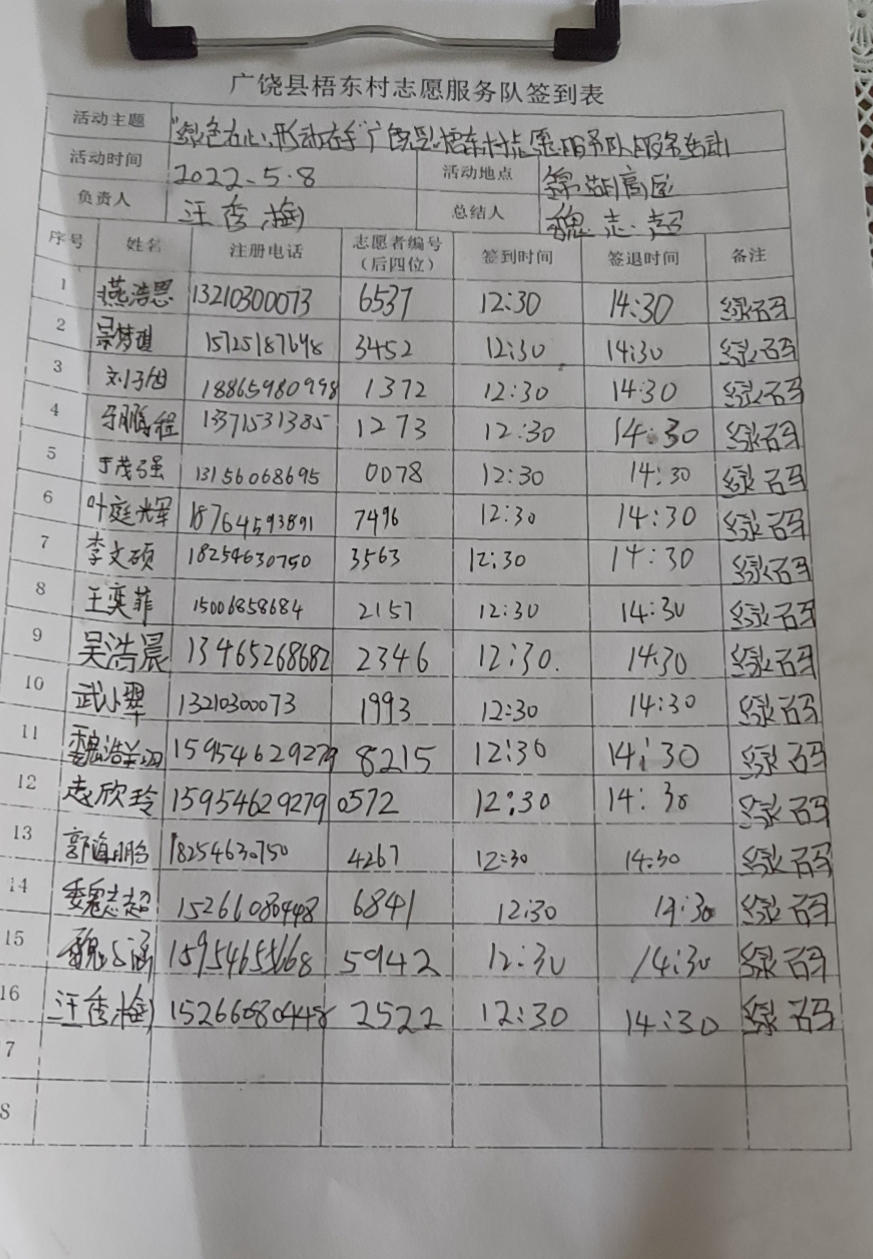 广饶县梧东村志愿服务队签到表
活动主题 "绿色在心,形动在手"广饶县梧东村志愿服务队服务活动
活动时间 2022.5.8 活动地点 锦湖高层
负责人 汪秀梅 总结人 魏志超
序号 姓名 注册电话 志愿者编号(后四位) 签到时间 签退时间 备注
1 燕浩恩 13210300073 6537 12:30 14:30 绿码
2 梦琪 15725187698 3452 12:30 14:30 绿码
3 刘子旭 18865980998 1372 12:30 14:30 绿码
4 马鹏程 13371531385 1273 12:30 14:30 绿码
5 于茂强 13156068695 0078 12:30 14:30 绿码
6 叶庭辉 18764593891 7496 12:30 14:30 绿码
7 李文硕 18254630750 3563 12:30 14:30 绿码
8 王奕菲 15006858684 2157 12:30 14:30 绿码
9 吴浩晨 13465268682 2346 12:30. 14:30 绿码
10 武小翠 13210300073 1993 12:30 14:30 绿码
11 魏浩 15954629279 8215 12:30 14:30 绿码
12 志欣玲 15954629279 0572 12:30 14:30 绿码
13 郭海鹏 18254630750 4267 12:30 14:30 绿码
14 魏志超 15266080448 6841 12:30 14:30 绿码
15 魏心涵 15954655668 5942 12:30 14:30 绿码
16 汪秀梅 15266080448 2522 12:30 14:30 绿码
7
8